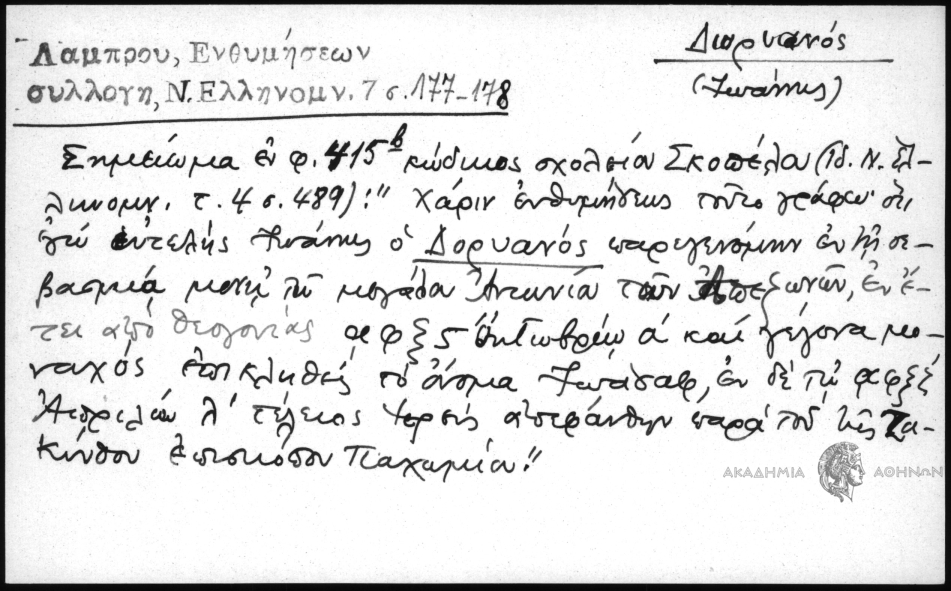 Λαμπρου, Ενθυμήσεων
συλλογη, Ν. Ελληνομν. 7 σ. 177-178
Δορυανός
(Ἰωάννης)
Σημείωμα ἐν φ. 415β κώδικος σχολείου Σκοπέλου (Ἰδ. Ν. Ἑλ-
ληνομν. τ. 4 σ. 489): "Χάριν ἐνθυμήσεως τοῦτο γράφω· ὅτι
ἐγώ εὐτελής Ἰωάννης ὁ Δορυανός παρεγενόμην ἐν τῇ σε-
βασμίᾳ μονῇ τοῦ μεγάλου Ἀντωνίου τῶν Ἀπεζωνῶν, ἐν ἔ-
τει ἀπό θεογονίας αφξς Ὀκτωβρίου α καί γέγονα μο-
ναχός ἐπικληθείς τό ὄνομα Ἰωάσαφ, ἐν δέ τῷ αφξξ
Ἀπριλίου λ' τέλειος ἱερεύς ἀπεφάνθην παρά τοῦ τῆς Ζα-
κύνθου ἐπισκόπου Παχωμίου."
ΑΚΑΔΗΜΙΑ ΑΘΗΝΩΝ